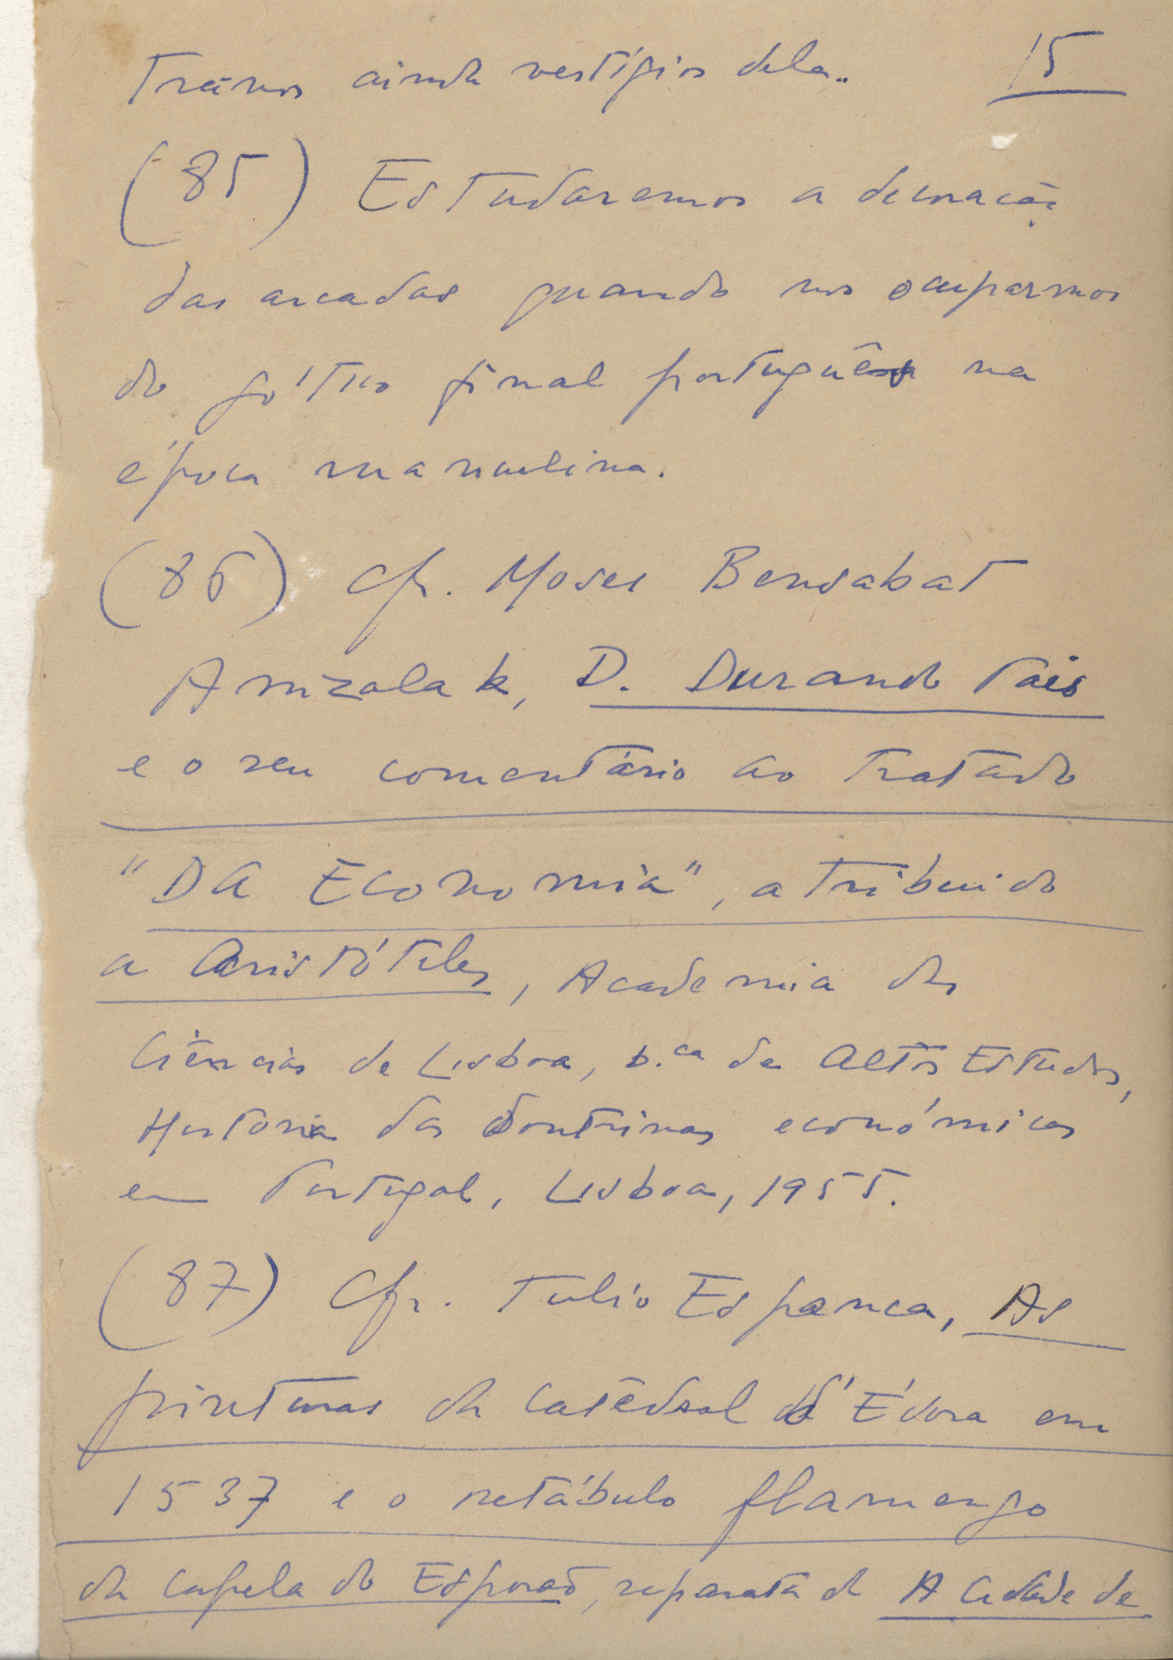 trámos ainda vestígios dela.. 15
(85) Estudaremos a decoração
das arcadas quando nos ocuparmos
do gótico final português na
época manuelina.
(86) Cfr. Moses Bensabat
Amzalak, D. Durando Pais
e o seu comentário ao tratado
"DA Economia", atribuido
a Aristóteles, Academia das
Ciências de Lisboa, b.ca de Altos Estudos,
Historia das doutrinas económicas
em Portugal, Lisboa, 1955.
(87) Cfr. Tulio Espanca, As
pinturas da Catedral d'Évora em
1537 e o retábulo flamengo
da capela do Esporão, separata de A Cidade de